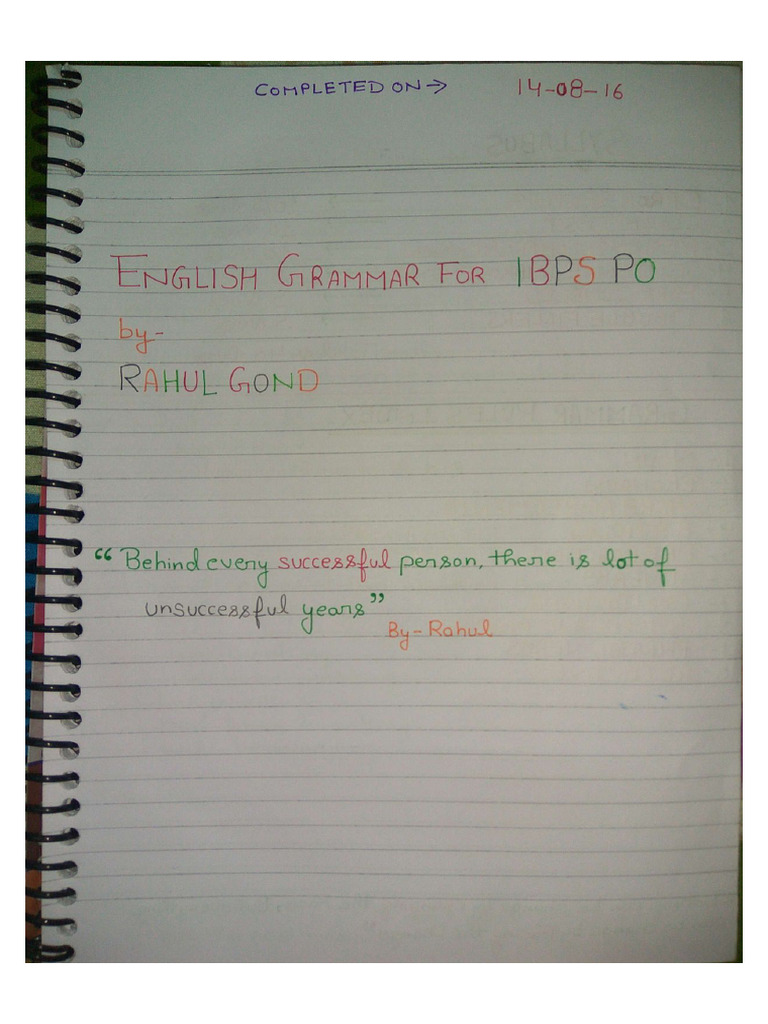 COMPLETED ON → 14-08-16
ENGLISH GRAMMAR FOR IBPS PO
by-
RAHUL GOND
“Behind every successful person, there is lot of
unsuccessful years”
By- Rahul